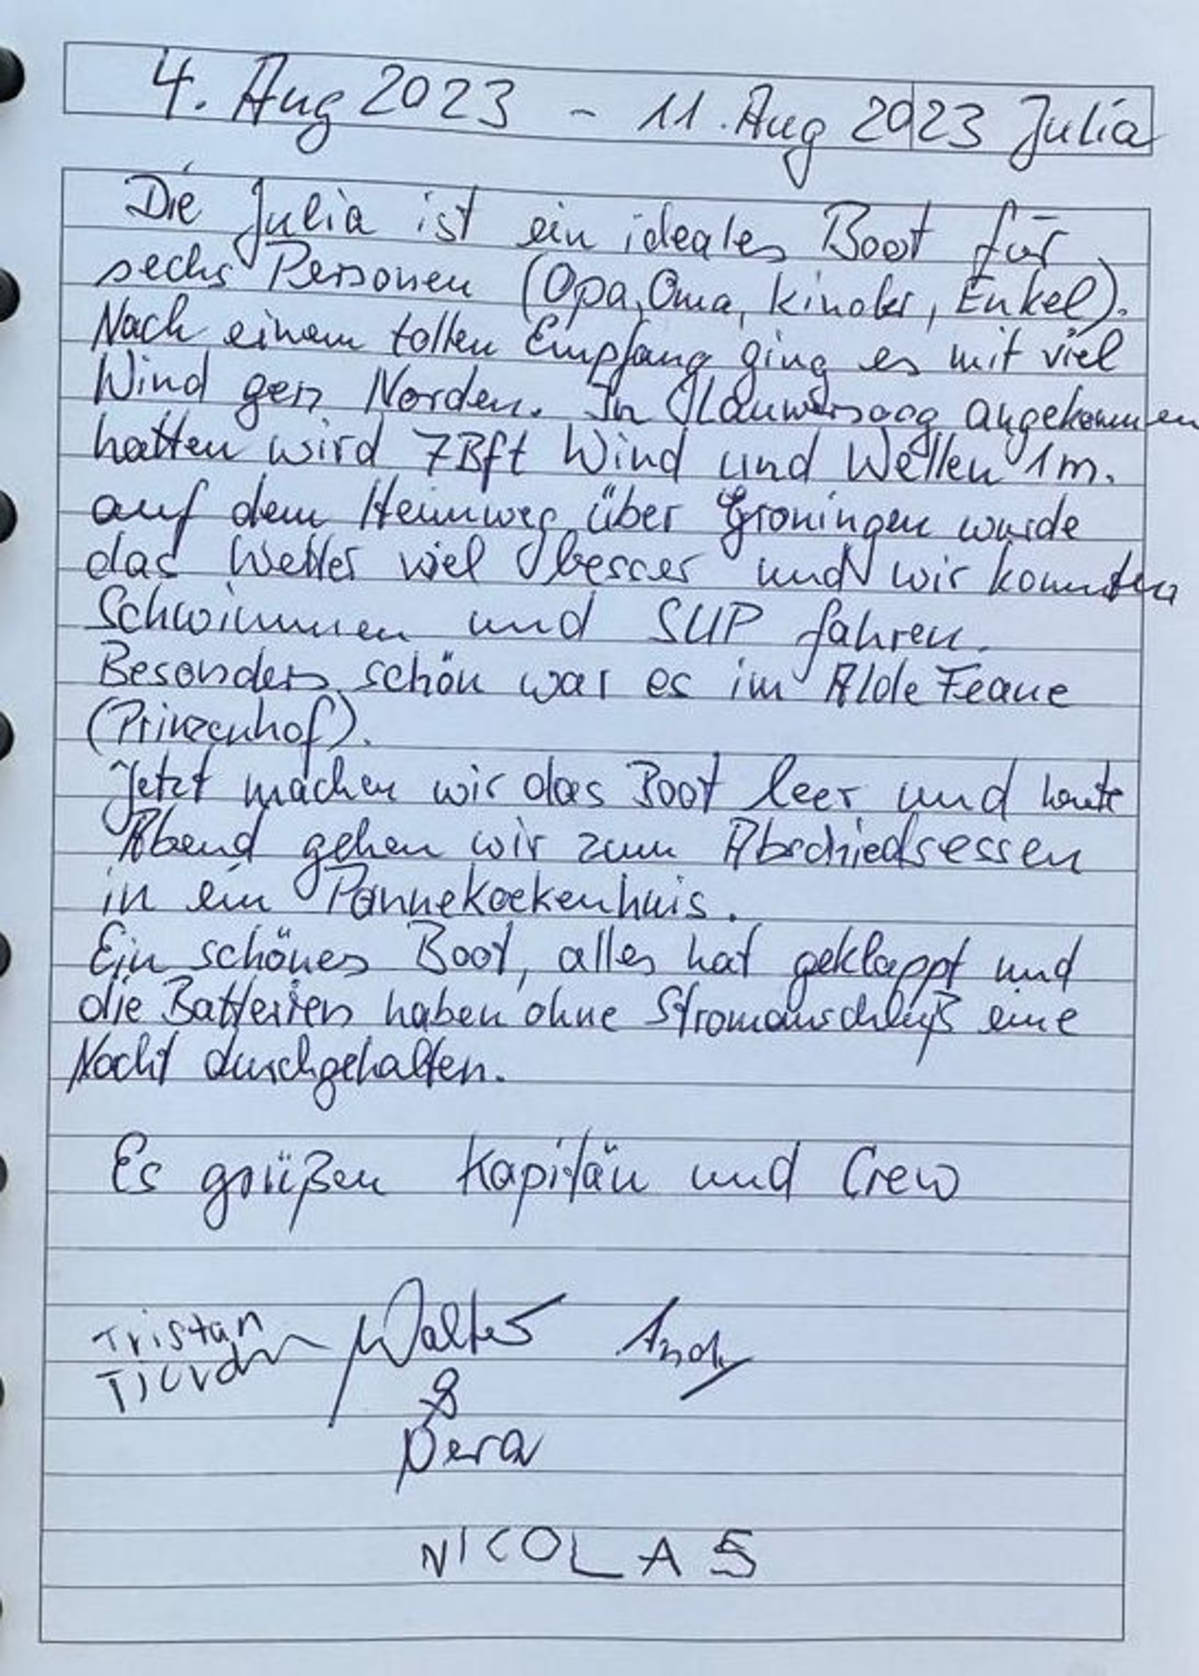 4. Aug 2023 - 11. Aug 2023 Julia
Die Julia ist ein ideales Boot für
sechs Personen (Opa, Oma, Kinder, Enkel).
Nach einem tollen Empfang ging es mit viel
Wind gen Norden. In angekommen
hatten wird 7Bft Wind und Wellen 1m.
auf dem Heimweg über Groningen wurde
das Wetter viel besser und wir konnten
Schwimmen und SUP fahren.
Besonders schön war es im Alde Feane
(Prinzenhof).
Jetzt machen wir das Boot leer und heute
Abend gehen wir zum Abschiedsessen
in ein Pannekoekenhuis.
Ein schönes Boot, alles hat geklappt und
die Batterien haben ohne Stromanschluß eine
Nacht durchgehalten.
Es grüßen Kapitän und Crew
Tristan Walter Andy
&
NICOLAS